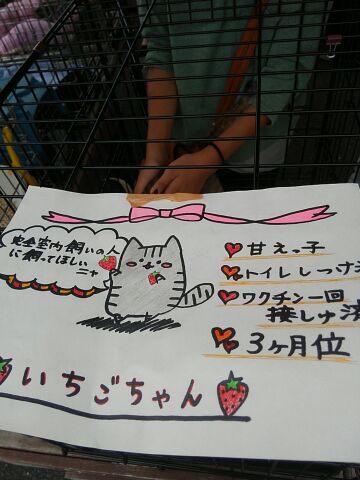 完全室内飼いの人
に飼ってほしい
ニャ
甘えっ子
トイレしつけ済
ワクチン一回
接しゅ済
3ヶ月位
いちごちゃん